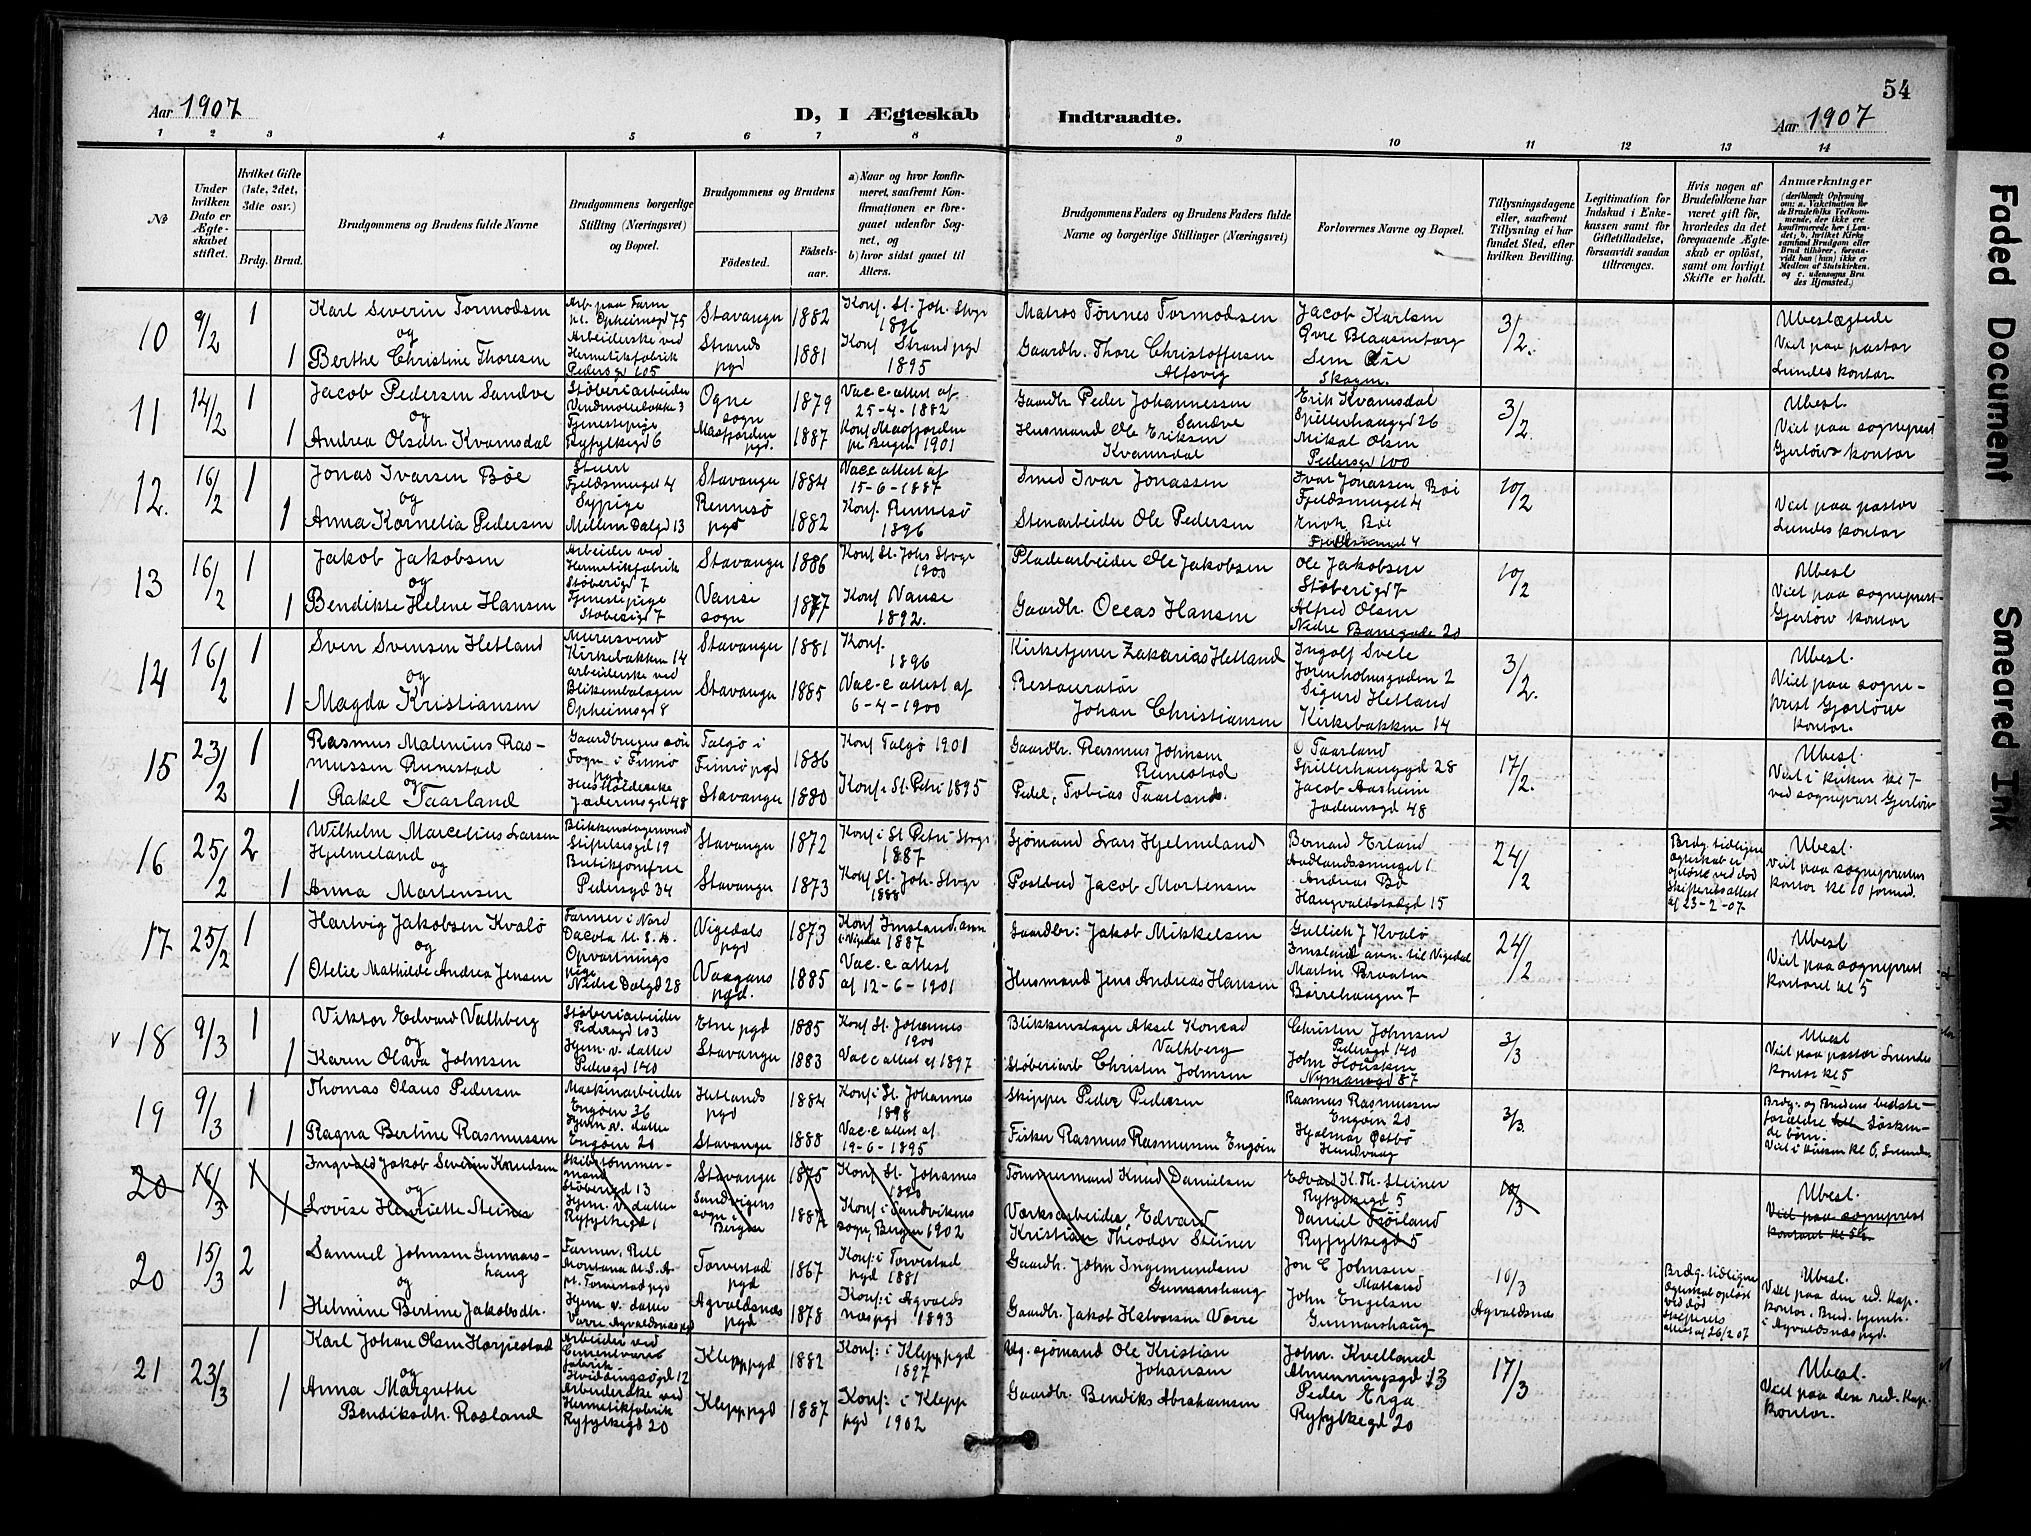 54
Aar 1907
D, I Ægteskab
Indtraadte.
Aar 1907
1 2 3 4 5 6 7 8 9 10 11 12 13 14
№
Under
hvilken
Dato er
Ægte-
skabet
stiftet.
Hvilket Gifte
(1ste, 2det,
3die osv.)
Brdg. Brud.
Brudgommens og Brudens fulde Navne
Brudgommens borgerlige
Stilling (Næringsvei)
og Bopæl.
Brudgommens og Brudens
Fødested.
Fødsels-
aar.
a) Naar og hvor konfir-
meret, saafremt Kon-
firmationen er fore-
gaaet udenfor Sog-
net, og
b) hvor sidst gaaet til
Alters.
Brudgommens Faders og Brudens Faders fulde
Navne og borgerlige Stillinger (Næringsvei)
Forlovernes Navne og Bopæl.
Tillysningsdagene
eller, saafremt
Tillysning ei har
fundet Sted, efter
hvilken Bevilling.
Legitimation for
Indskud i Enke-
kassen samt for
Giftetilladelse,
forsaavidt saadan
tiltrænges.
Hvis nogen af
Brudefolkene har
været gift før,
hvorledes da det
foregaaende Ægte-
skab er opløst,
samt om lovligt
Skifte er holdt.
Anmærkninger
(deriblandt Oplysning
om: a. Vakcination for
de Brudefolks Vedkom-
mende, der ikke ere
konfirmerede her i Lan-
det; b. hvilket Kirke
samfund Brudgom eller
Brud tilhører, forsaa-
vidt han (hun) ikke er
Medlem af Statskirken,
og c. udensogns Bru
des Hjemsted.)
10 9/2 1
Karl Severin Tormodsen
og
1 Berthe Christine Thoresen
Arb. paa Farm
Opheimsgd 75
Arbeiderske ved
Hermetikfabrik
Pedersgd 105
Stavanger 1882
Strands
pgd 1881
Konf. St. Joh. Stvgr
1896
Konf Strand pgd
1895
Matros Tønnes Tormodsen
Gaardbr. Thore Christoffersen
Alfsvig
Jacob Karlsen
Øvre Blaasenborg
Sem Øie
Skagen.
3/2.
Ubeslægtede
Viet paa pastor
Lundes kontor
11 14/2 1
Jacob Pedersen Sandve
og
1 Andrea Olsdtr. Kvamsdal
Støberiarbeider
Vindmøllebakke 3
Tjenestepige
Ryfylkegd 6
Ogne
sogn 1879
Masfjorden
pgd. 1887
Vac-c attest af
25-4-1882
Konf Masfjorden
pr. Bergen 1901
Gaardbr Peder Johannessen
Sandve
Husmand Ole Eriksen
Kvamsdal
Erik Kvamsdal
Spilderhauggd 26
Mikal Olsen
Pedersgd 100
3/2.
Ubesl.
Viet paa sogneprest
Gjerløws kontor
12. 16/2 1
Jonas Ivarsen Bøe
og
1 Anna Kornelia Pedersen
Stuert
Fjeldsmuget 4
Sypige
Mellem Dalgd 13
Stavanger 1884
Rennesø
pgd 1882
Vac c attest af
15-6-1887
Konf. Rennesø
1896
Smed Ivar Jonassen
Stenarbeider Ole Pedersen
Ivar Jonassen Bøi
Fjeldsmuget 4
Enok Bøe
Fjeldsmuget 4
10/2
Viet paa pastor
Lundes kontor
13 16/2 1
Jakob Jakobsen
og
1 Bendikte Helene Hansen
Arbeider ved
Hermetikfabrik
Støberigd 7
Tjenestepige
Støberigd 7
Stavanger 1886
Vanse
sogn 1877
Konf St. Johs Stvgr
1900
Konf Vanse
1892.
Pladearbeider Ole Jakobsen
Gaardbr. Oceas Hansen
Ole Jakobsen
Støberigd 7
Alfred Olsen
Nedre Banegade 20
10/2
Ubesl
Viet paa sogneprest
Gjerløw kontor
14 16/2 1
Sven Svensen Hetland
og
1 Magda Kristiansen
Murersvend
Kirkebakken 14
arbeiderske ved
Blikemballagen
Opheimsgd 8
Stavanger 1881
Stavanger 1885
Konf.
1896
Vac-c attest af
6-4-1900
Kirketjener Zakarias Hetland
Restauratør
Johan Christiansen
Ingolf Svele
Jorenholmsgaden 2
Sigurd Hetland
Kirkebakken 14
3/2.
Ubesl.
Viet paa sogne-
prest Gjerløws
kontor.
15 23/2 1
Rasmus Malenius Ras-
mussen Runestad
og
1 Rakel Taarland
Gaardbrugers søn
Fogn i Finnø
pgd
Husholderske
Jadernsgd 48
Talgø i
Finnø pgd 1886
Stavanger 1880
Konf Talgø 1901
Konf. St. Petri 1895
Gaardbr. Rasmus Johnsen
Runestad
Pedel, Tobias Taarland.
O Taarland
Spilderhauggd 28
Jacob Aasheim
Jadernsgd 48
17/2.
Ubesl.
Viet i kirken kl 7
ved sogneprest Gjerløw
16 25/2 2
Wilhelm Marcelius Larsen
Hjelmeland
og
1 Anna Mortensen
Blikkenslagersvend
Stiftelsesgd 19
Butikjomfru
Pedersgd 34
Stavanger 1872
Stavanger 1873
Konf i St Petri Stvgr
1887
Konf St. Joh. Stvgr
1888
Sjømand Lars Hjelmeland
Postbud Jacob Mortensen
Bernard Erland
Aadlandssmuget 1
Andreas Bø
Haugvaldstadsgd 15
24/2
Brdg. tidligere
ægteskab er
opløst ved død
skifteretsattest
af 23-2-07.
Ubesl.
Viet paa sogneprestens
kontor kl 10 formid.
17 25/2 1
Hartvig Jakobsen Kvalø
og
1 Otelie Mathilde Andrea Jensen
Farmer i Nord
Dacota U. S. A.
Opvartnings
pige
Nedre Dalgd 28
Vigedals
pgd 1873
Vaagans
pgd. 1885
Konf Imsland, ann
i Vigedal 1887
Vac. c attest
af 12-6-1901
Gaardbr: Jakob Mikkelsen
Husmand Jens Andreas Hansen
Gullich J Kvalø
Imsland ann. til Vigedal
Martin Braaten
Børrehaugen 7
24/2
Ubesl
Viet paa sogneprest
kontoret kl 5
v 18 9/3 1
Viktor Edvard Vathberg
og
1 Karen Olava Johnsen
Støberiarbeider
Pedersgd 103
Hjem. v. datter
Pedersgd 140
Etne pgd 1885
Stavanger 1883
Konf St. Johannes
1900
Vac c attest af 1897
Blikkenslager Aksel Konrad
Vathberg
Støberiarb Christen Johnsen
Christen Johnsen
Pedersgd 140
John Housken
Nymansgd 87
3/3
Ubesl
Viet paa pastor Lundes
kontor kl 5
19 9/3 1
Thomas Olaus Pedersen
1 Ragna Bertine Rasmussen
Maskinarbeider
Engøen 36
Hjem. v. datter
Engøen 20
Hetlands
pgd 1884
Stavanger 1888
Konf i St. Johannes
1898
Vac-c attest af
19-6-1895
Skipper Peder Pedersen
Fisker Rasmus Rasmussen Engøen
Rasmus Rasmussen
Engøen 20
Hjalmar Østbø
Hundvaag
3/3
Brdg. og Brudens bedste-
forældre Søsken-
de børn.
Viet i kirken kl 6, Lunde
20 16/3 1
Ingvald Jakob Severin Knudsen
og
1 Lovise Henriette Steiner
Skibstømmer-
mand
Støberigd 13
Hjem. v. datter
Ryfylkegd 1
Stavanger 1875
Sandvigens
sogn i
Bergen 1887
Konf St. Johannes
1890
Konf i Sandvikens
sogn, Bergen 1902
Tømmermand Knud Danielsen
Værksarbeider, Edvard
Kristian Theodor Steiner
Edvard K. Th. Steiner
Ryfylkegd 5
Daniel Frøiland
Ryfylkegd 5
10/3
Ubesl.
Viet paa sogneprest
kontoret kl 5½
20 15/3 2
Samuel Johnsen Gunnars-
haug
og
1 Helmine Bertine Jakobsdtr.
Farmer, Bell
Montana U. S. A
Torvestad pgd
Hjem. v. datter
Vorre Agvaldsnæs pgd
Torvestad
pgd 1867
Agvaldsnæs
pgd 1878
Konf: i Torvestad
pgd 1881
Konf: i Agvalds
næs pgd 1893
Gaardbr. John Ingemundsen
Gunnarshaug
Gaardbr. Jakob Halvorsen Vorre
Jon C Johnsen
Matland
John Engelsen
Gunnarshaug
10/3
Agvaldsnæs
Brdg. tidligere
ægteskab opløst
ved død
skifterets
attest af 26/2 07
Ubesl.
Viet paa den red. Kap.
kontor. Brud. hjemh.
i Agvaldsnæs pgd.
21 23/3 1
Karl Johan Olsen Harpestad
og
1 Anna Margrethe
Bendiksdtr. Rosland
Arbeider ved
Cementvare
fabrik
Hvidingsøgd 12
Arbeiderske ved
Hermetikfabrik
Ryfylkegd 20
Klepp pgd 1882
Klepp pgd 1887
Konf: i Klepp pgd
1897
Konf: i Klepp
pgd 1902
Ug. sjømand Ole Kristian
Johansen
Gaardbr. Bendiks Abrahamsen
John. Kvelland
Almenningsgd 13
Peder Erga
Ryfylkegd 20
17/3
Ubesl.
Viet paa den red. Kap.
kontor.
Faded Document
Smeared Ink